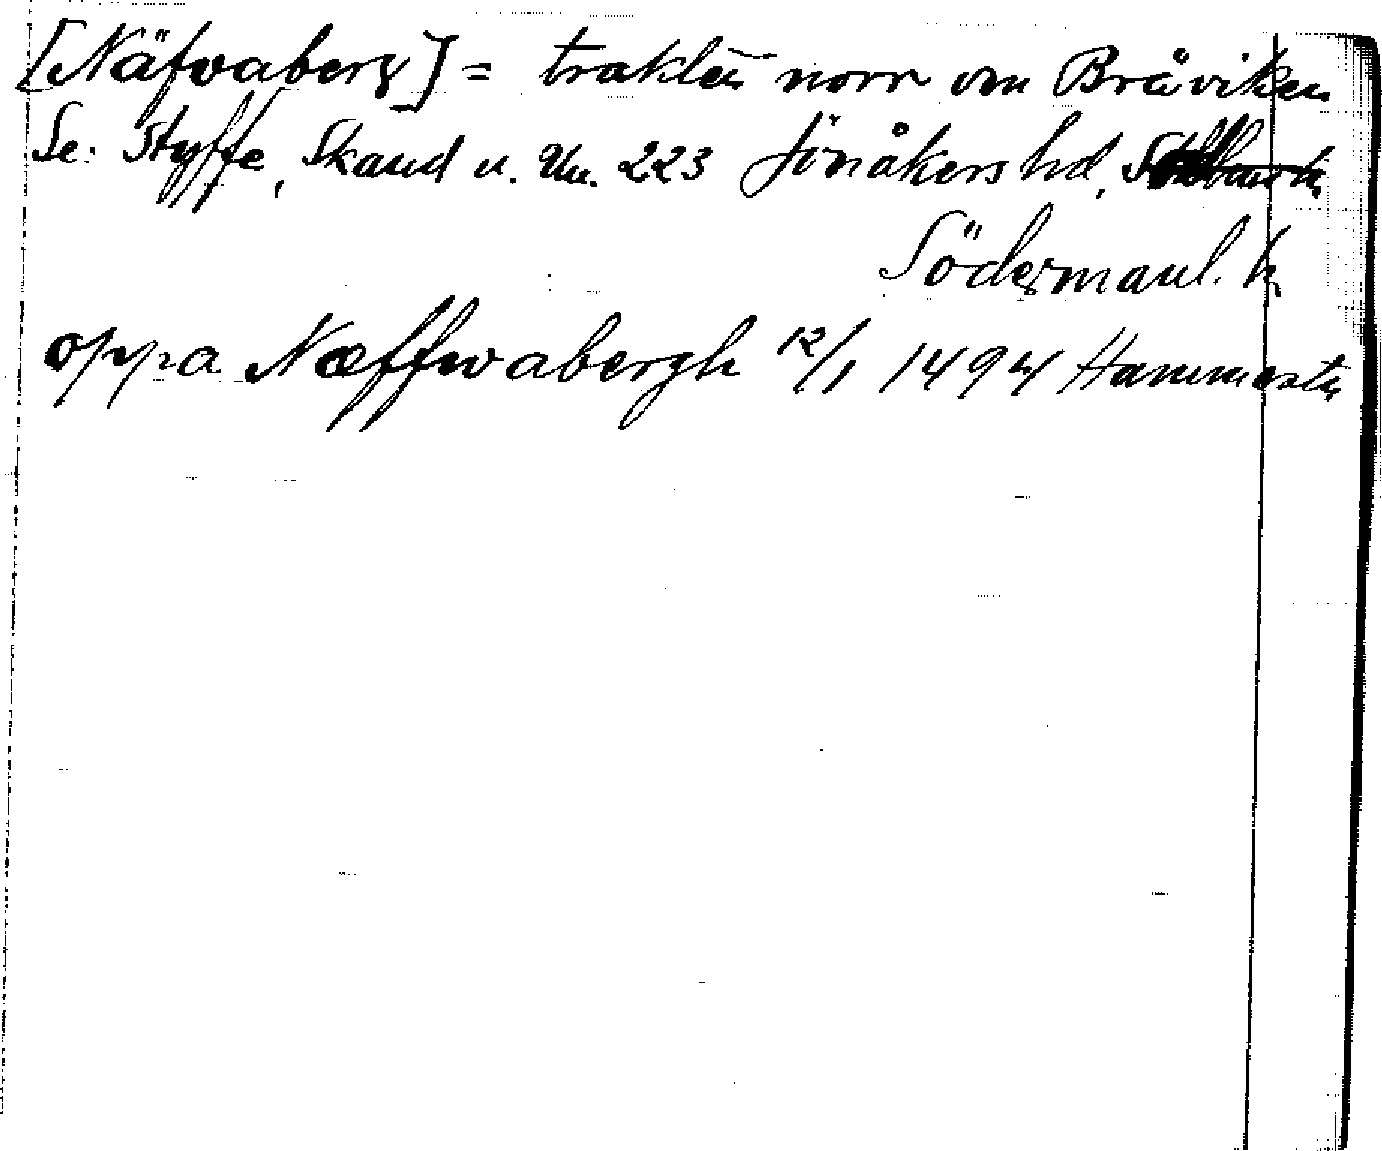 [Näfvaberg] = trakten norr om Bråviken
Se. Styffe, Skand u. Un. 223 Jönåkers hd,
Södermanl. h
oppa Næffwabergh 12/1 1494 Hammersta